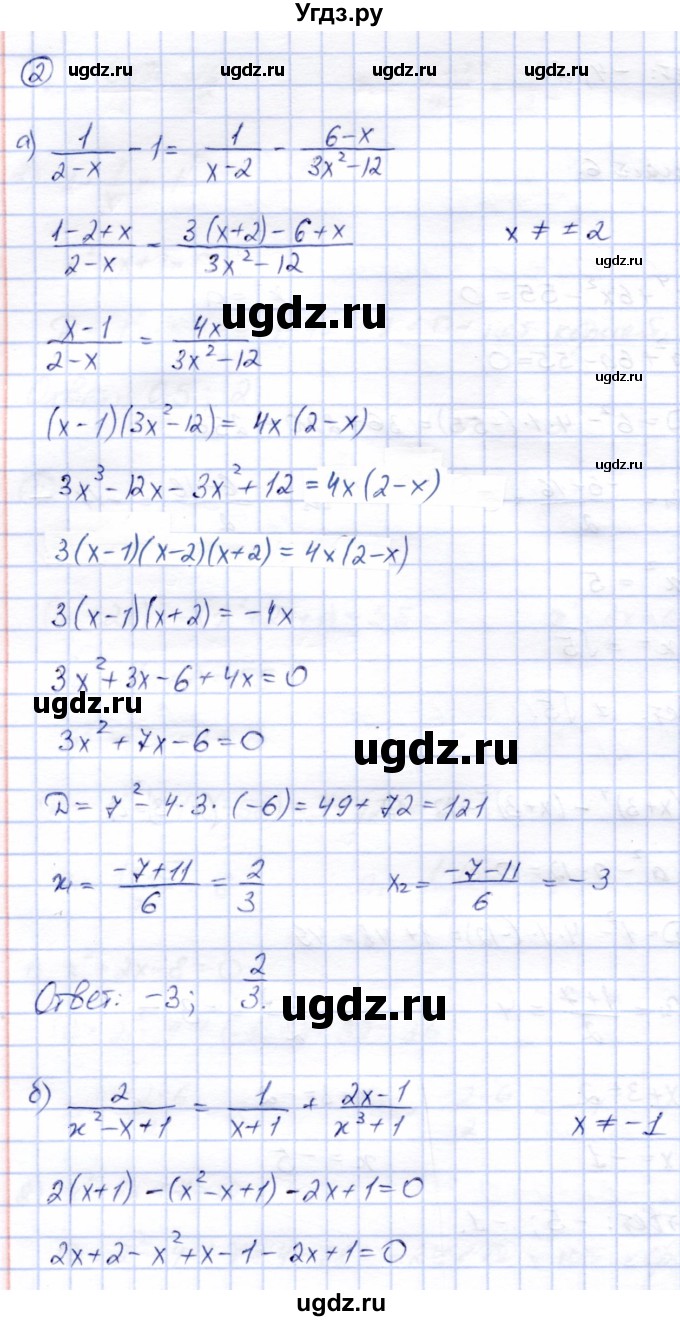 Угдз.ру
② ugdz.ru ugdz.ru ugdz.ru ugdz.ru
а) 1/(2-x) - 1 = 1/(x-2) - (6-x)/(3x²-12)
(1-2+x)/(2-x) = (3(x+2)-6+x)/(3x²-12) x ≠ ±2
ugdz.ru
ugdz.ru
(x-1)/(2-x) = 4x/(3x²-12)
ugdz.ru
(x-1)(3x²-12) = 4x(2-x)
ugdz.ru
3x³-12x-3x²+12 = 4x(2-x)
3(x-1)(x-2)(x+2) = 4x(2-x)
ugdz.ru
3(x-1)(x+2) = -4x
3x²+3x-6+4x=0
ugdz.ru
3x²+7x-6=0
ugdz.ru
D = 7²-4·3·(-6) = 49+72 = 121
x₁ = (-7+11)/6 = 2/3 x₂ = (-7-11)/6 = -3
Ответ: -3; 2/3.
ugdz.ru
б) 2/(x²-x+1) = 1/(x+1) + (2x-1)/(x³+1) x ≠ -1
2(x+1)-(x²-x+1)-2x+1=0
2x+2-x²+x-1-2x+1=0
ugdz.ru